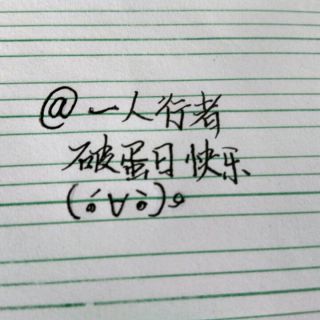 @一人行者
破蛋日快乐
(•́∀•̀)و